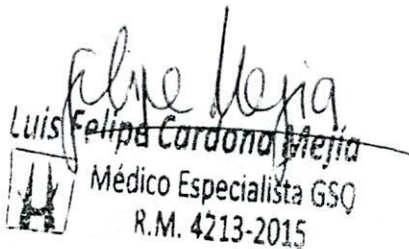 Felipe Mejia
Luis Felipe Cardona Mejía
Médico Especialista GSO
R.M. 4213-2015